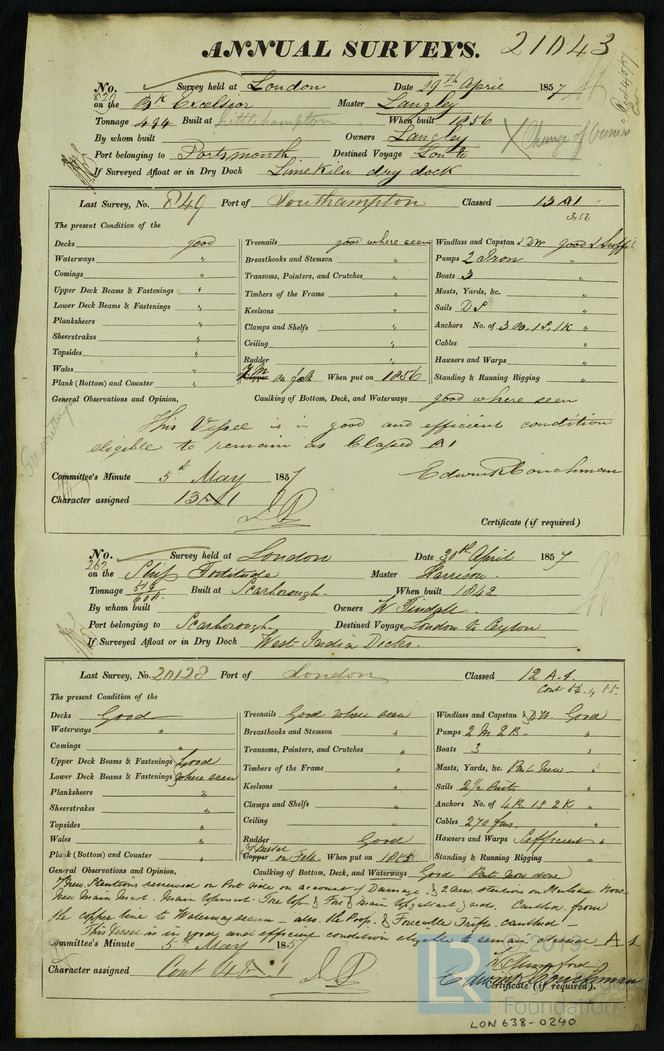 ANNUAL SURVEYS. 21043
No. 820 Survey held at London Date 29th April 1857
on the Bk Excelsior Master Langley
Tonnage 494 Built at Littlehampton When built 1856
By whom built Owners Langley X Change of Owners
Port belonging to Portsmouth Destined Voyage
If Surveyed Afloat or in Dry Dock Limekiln dry dock
Last Survey, No. 849 Port of Southampton Classed 13 A1
3,56
The present Condition of the
Decks good Treenails good where seen Windlass and Capstan & DW good & Suffi
Waterways " Breasthooks and Stemson " Pumps 2 Iron "
Comings " Transoms, Pointers, and Crutches " Boats 3 "
Upper Deck Beams & Fastenings " Timbers of the Frame " Masts, Yards, &c. "
Lower Deck Beams & Fastenings " Keelsons " Sails DS "
Planksheers " Clamps and Shelfs " Anchors No. of 3 B. 1S. 1K "
Sheerstrakes " Ceiling " Cables "
Topsides " Rudder " Hawsers and Warps "
Wales " Y.M. Copper on felt When put on 1856 Standing & Running Rigging "
Plank (Bottom) and Counter "
General Observations and Opinion, Caulking of Bottom, Deck, and Waterways good where seen
This Vessel is in good and efficient condition
eligible to remain as Classed A1
Committee's Minute 5th May 1857 Edwin R Couchman
Character assigned 13 A1
Certificate (if required)
No. 262 Survey held at London Date 30th April 1857
on the Ship Fortitude Master Harrison
Tonnage 518 Built at Scarborough When built 1842
By whom built Owners W Tindall
Port belonging to Scarborough Destined Voyage London to Ceylon
If Surveyed Afloat or in Dry Dock West India Docks.
Last Survey, No. 20128 Port of London Classed 12 A.1.
Cont 54. 4 55.
The present Condition of the
Decks Good Treenails Good where seen Windlass and Capstan & D.W. Good
Waterways " Breasthooks and Stemson " Pumps 2 M 2 B "
Comings " Transoms, Pointers, and Crutches " Boats 3 "
Upper Deck Beams & Fastenings Good Timbers of the Frame " Masts, Yards, &c. Part New "
Lower Deck Beams & Fastenings where seen Keelsons " Sails 2½ Suits "
Planksheers " Clamps and Shelfs " Anchors No. of 4B 1S 2K "
Sheerstrakes " Ceiling " Cables 270 fms "
Topsides " Rudder Good Hawsers and Warps Sufficient "
Wales " Y Metal Copper on Felt When put on Standing & Running Rigging "
Plank (Bottom) and Counter "
General Observations and Opinion, Caulking of Bottom, Deck, and Waterways Good Part now done
New Stantions renewed on Port side on account of Damage & 2 new stantions on
New Main Mast. Main topmast. Fore top & Fore & main Caulked from
the copper line to Waterway seam also the Poop & Forecastle caulked
This Vessel is in good and efficient condition eligible to remain classed A 1
Committee's Minute 5th May 1857
Character assigned Cont 4 A 1
Edwin R Couchman
Certificate (if required).
LR
Foundation
LON 638-0240